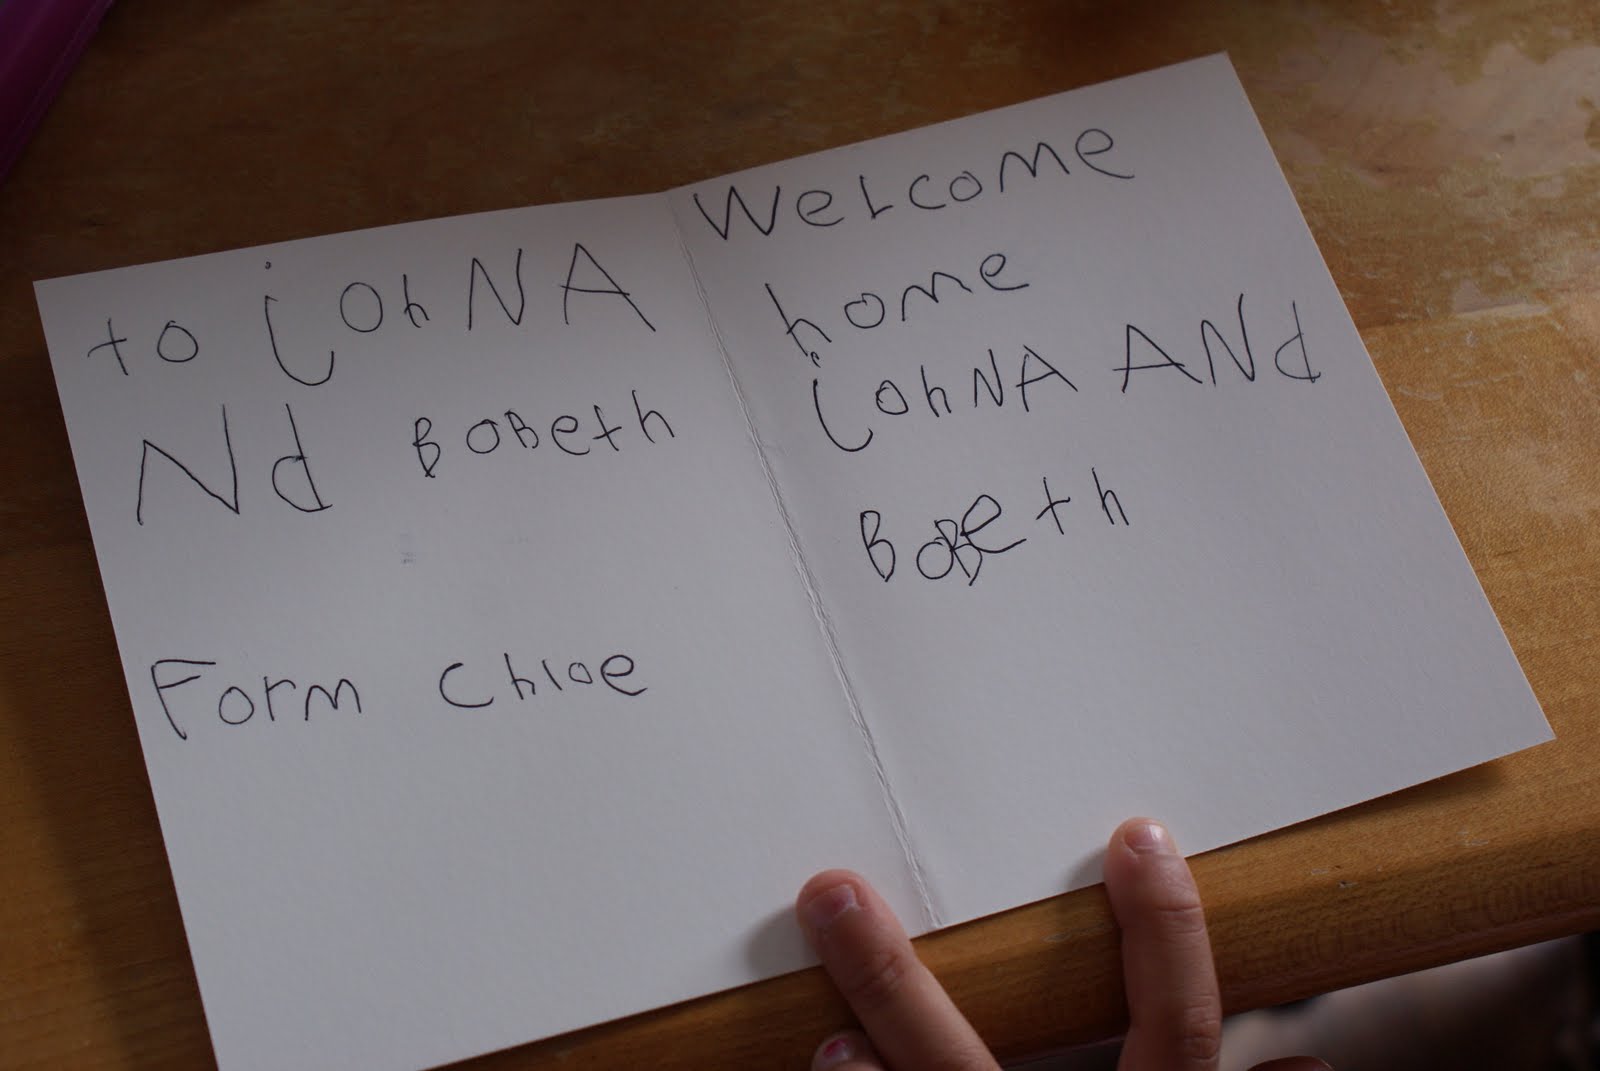 to johNA
Nd BOBeth
Form Chloe
Welcome
home
johNA ANd
BOBeth